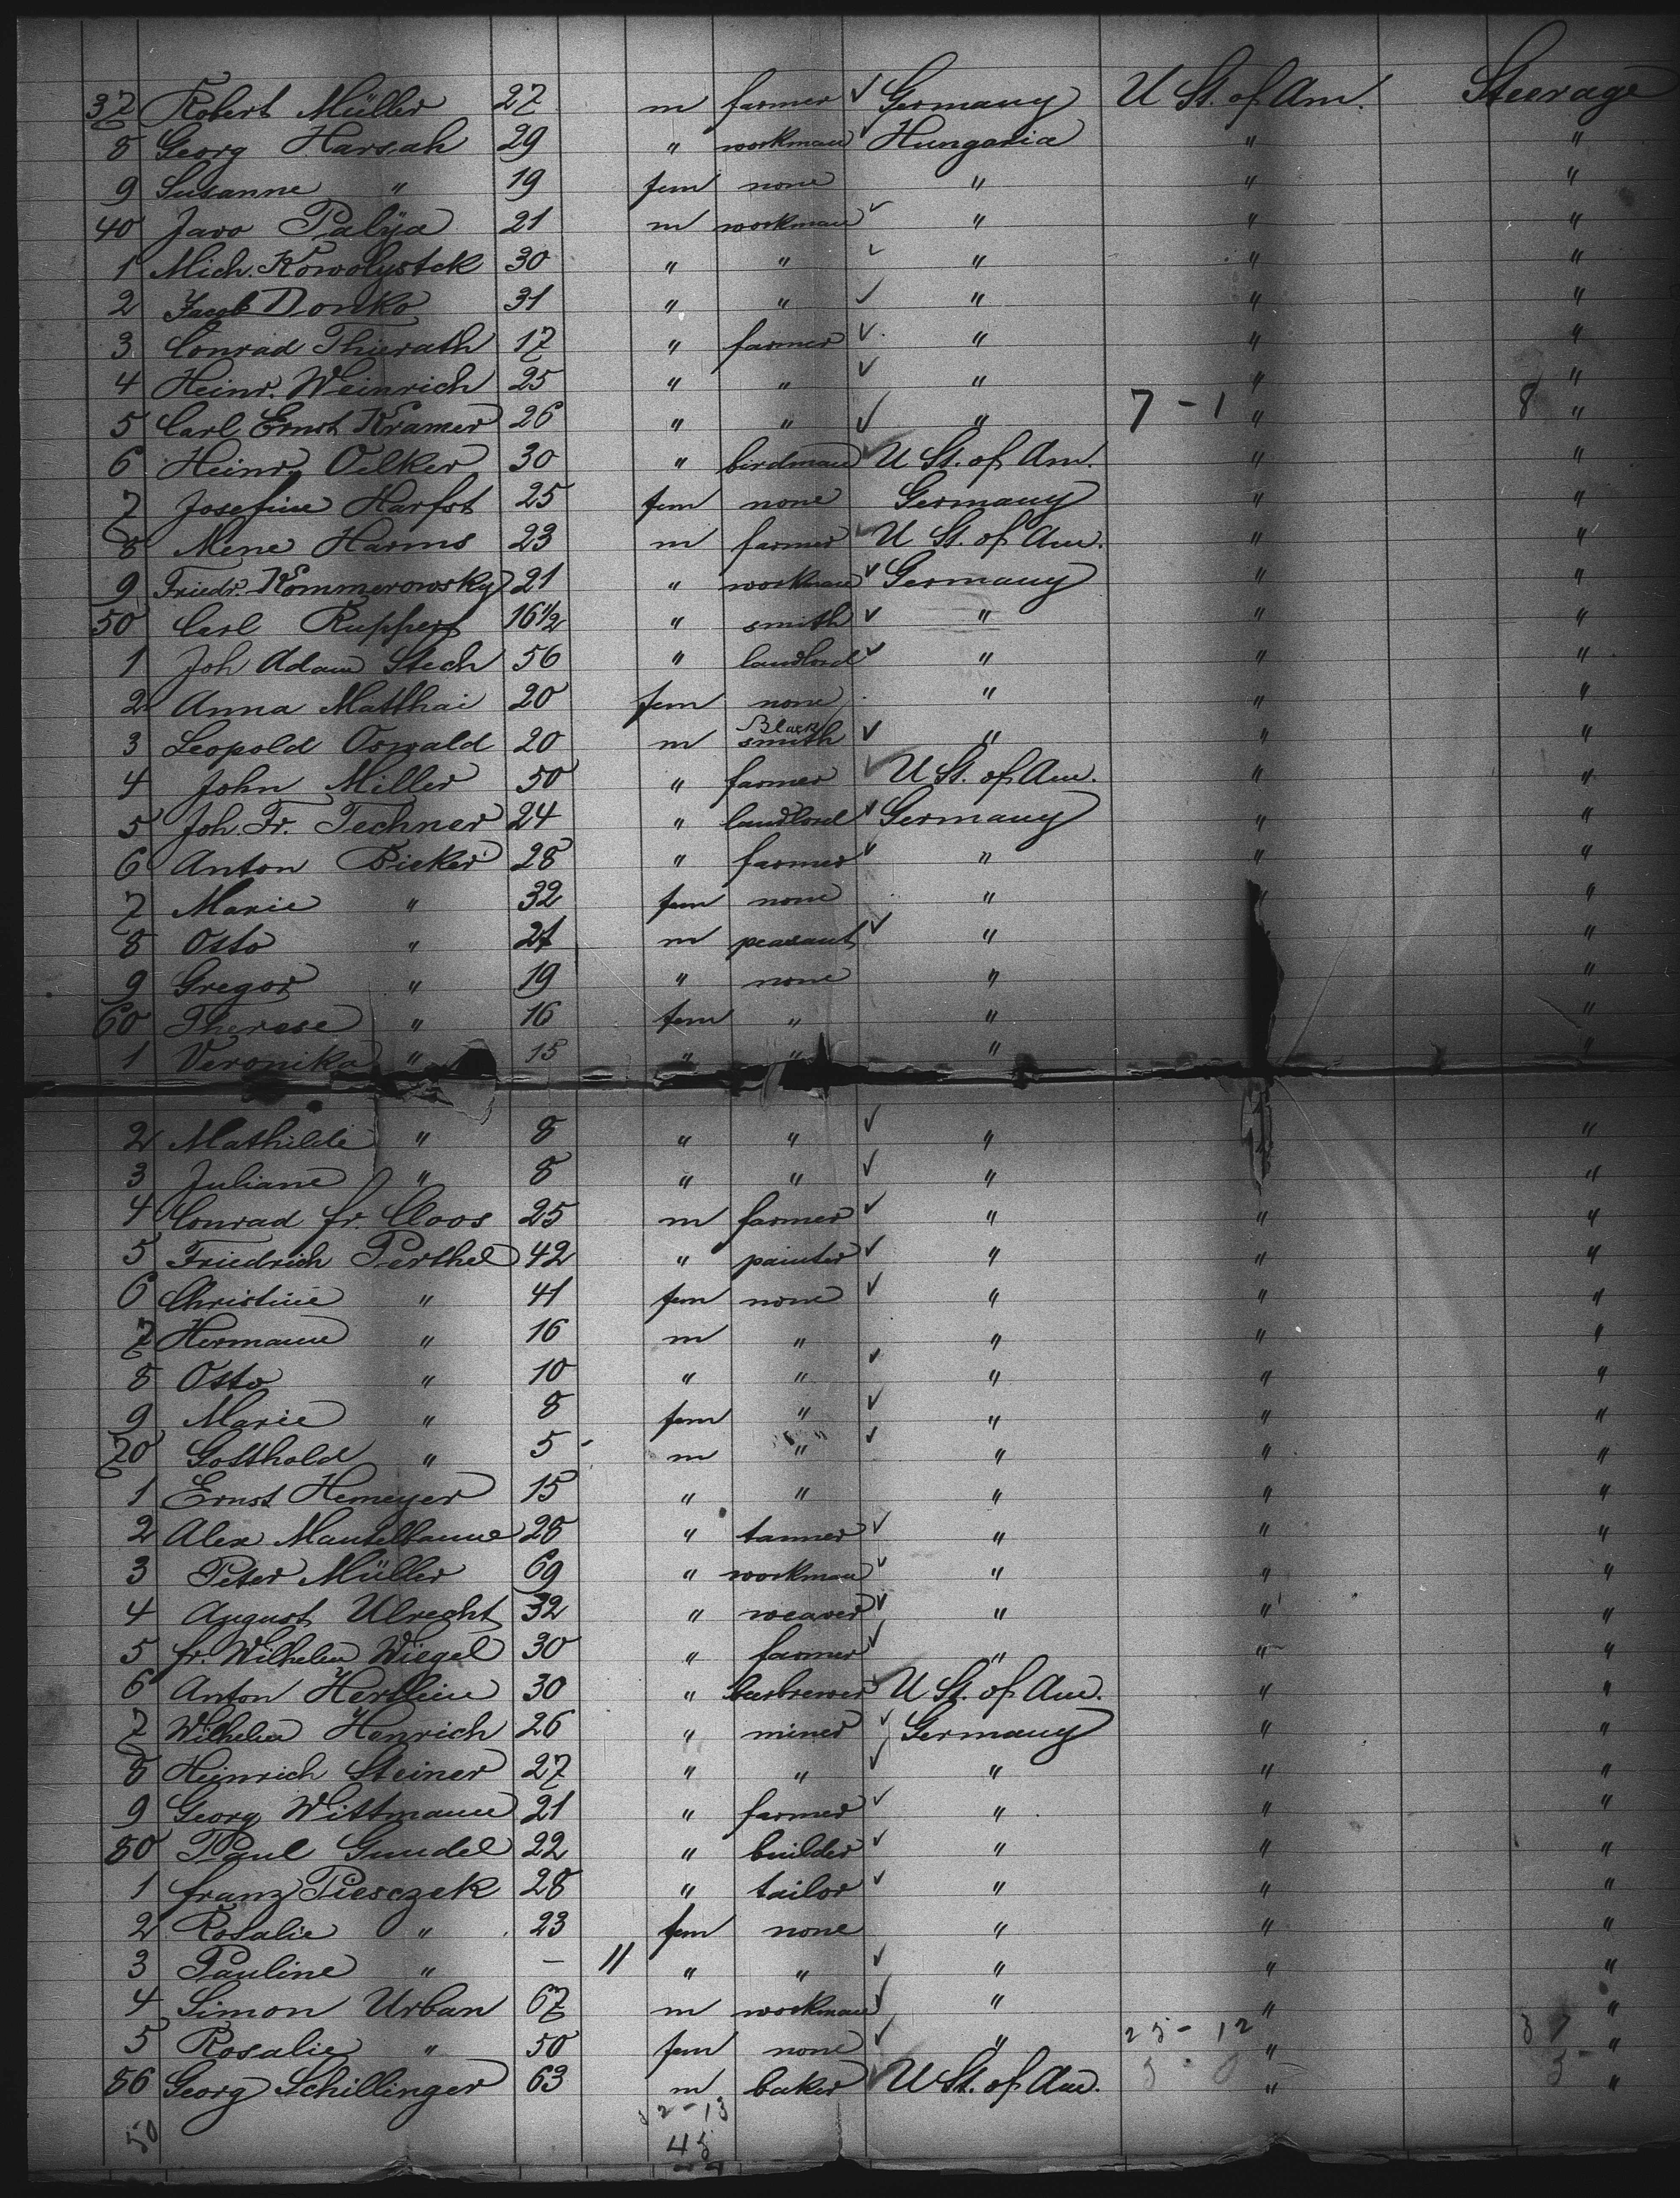 37 Robert Müller 27 m farmer ✓ Germany U St. of Am. Steerage
8 Georg Harsah 29 " workman ✓ Hungaria " "
9 Susanne " 19 fem none " " "
40 Javo Palÿa 21 m workman ✓ " " "
1 Mich. Kowolystek 30 " " ✓ " " "
2 Jacob Donko 31 " " ✓ " " "
3 Conrad Thierath 17 " farmer ✓ " " "
4 Heinr. Weinrich 25 " " ✓ " " "
5 Carl Ernst Kramer 26 " " ✓ " 7 - 1 " 8 "
6 Heinr. Oelker 30 " birdman ✓ U St. of Am. " "
7 Josefine Harfst 25 fem none Germany " "
8 Mene Harms 23 m farmer ✓ U St. of Am. " "
9 Friedr. Kommerowsky 21 " workman ✓ Germany " "
50 Carl Ruppert 16 1/2 " smith ✓ " " "
1 Joh Adam Stech 56 " landlord ✓ " " "
2 Anna Matthai 20 fem none " " "
3 Leopold Oswald 20 m Black smith ✓ " " "
4 John Miller 50 " farmer ✓ U St. of Am. " "
5 Joh. Fr. Techner 24 " landlord ✓ Germany " "
6 Anton Bicker 28 " farmer ✓ " " "
7 Marie " 32 fem none " " "
8 Otto " 21 m peasant ✓ " " "
9 Gregor " 19 " none " " "
60 Therese " 16 fem " " " "
1 Veronika " 15 " " " "
2 Mathilde " 8 " " ✓ " "
3 Juliane " 8 " " ✓ " "
4 Conrad fr. Cloos 25 m farmer ✓ " " "
5 Friedrich Perthel 42 " painter ✓ " " "
6 Christine " 41 fem none ✓ " " "
7 Hermann " 16 m " " " "
8 Otto " 10 " " ✓ " " "
9 Marie " 8 fem " ✓ " " "
70 Gotthold " 5 m " ✓ " " "
1 Ernst Hemeyer 15 " " " " "
2 Alex Mantelbaum 28 " tanner ✓ " " "
3 Peter Müller 69 " workman ✓ " " "
4 August Ulrecht 32 " weaver ✓ " " "
5 fr. Wilhelm Wiegel 30 " farmer ✓ " " "
6 Anton Hertlein 30 " beerbrewer ✓ U St. of Am. " "
7 Wilhelm Henrich 26 " miner ✓ Germany " "
8 Heinrich Steiner 27 " " ✓ " " "
9 Georg Wittmann 21 " farmer ✓ " " "
80 Paul Gundel 22 " builder ✓ " " "
1 franz Piesczek 28 " tailor ✓ " " "
2 Rosalie " 23 fem none " " "
3 Pauline " – 11 " " ✓ " " "
4 Simon Urban 67 m workman ✓ " " "
5 Rosalie " 50 fem none ✓ " 25 - 12 " 37 "
86 Georg Schillinger 63 m baker ✓ U St. of Am. " "
50 32 - 13
45